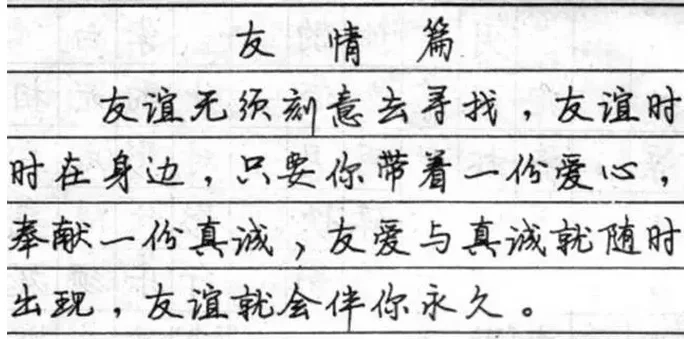 友情篇
友谊无须刻意去寻找，友谊时
时在身边，只要你带着一份爱心，
奉献一份真诚，友爱与真诚就随时
出现，友谊就会伴你永久。